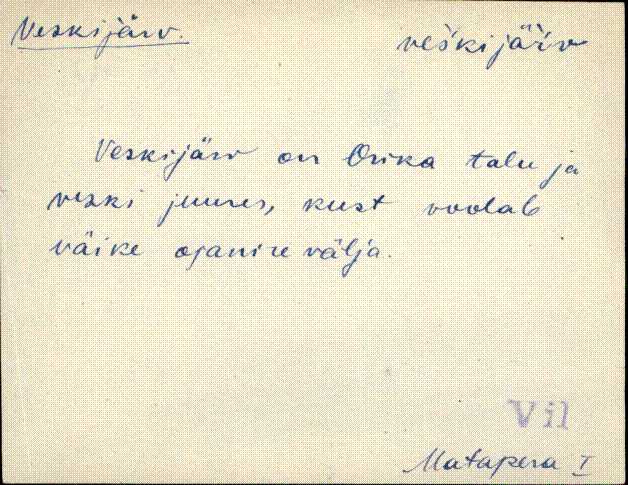 Veskijärv.
veśkijär̀v
Veskijärv on Orika talu ja
veski juures, kust voolab
väike ojanire välja.
Vil
Matapera I